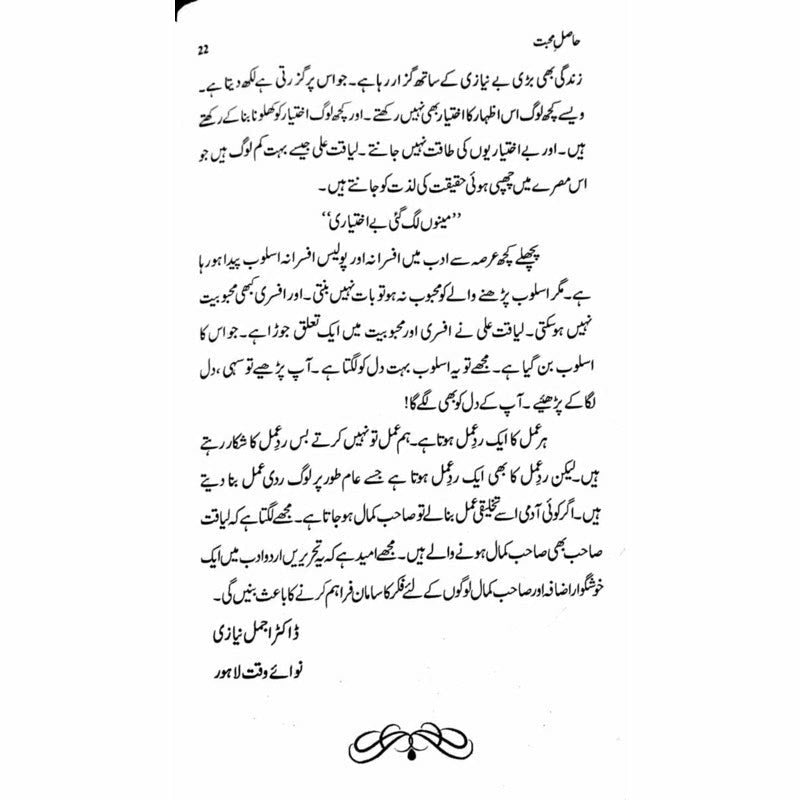 حاصلِ محبت
22
زندگی بھی بڑی بے نیازی کے ساتھ گزار رہا ہے۔ جو اس پر گزرتی ہے لکھ دیتا ہے۔
ویسے کچھ لوگ اس اظہار کا اختیار بھی نہیں رکھتے۔ اور کچھ لوگ اختیار کو کھلونا بنا کے رکھتے
ہیں۔ اور بے اختیاریوں کی طاقت نہیں جانتے۔ لیاقت علی جیسے بہت کم لوگ ہیں جو
اس مصرے میں چھپی ہوئی حقیقت کی لذت کو جانتے ہیں۔
”مینوں لگ گئی بے اختیاری“
پچھلے کچھ عرصہ سے ادب میں افسرانہ اور پولیس افسرانہ اسلوب پیدا ہو رہا
ہے۔ مگر اسلوب پڑھنے والے کو محبوب نہ ہو تو بات نہیں بنتی۔ اور افسری کبھی محبوبیت
نہیں ہو سکتی۔ لیاقت علی نے افسری اور محبوبیت میں ایک تعلق جوڑا ہے۔ جو اس کا
اسلوب بن گیا ہے۔ مجھے تو یہ اسلوب بہت دل کو لگتا ہے۔ آپ پڑھیے تو سہی، دل
لگا کے پڑھیئے۔ آپ کے دل کو بھی لگے گا!
ہر عمل کا ایک ردِعمل ہوتا ہے۔ ہم عمل تو نہیں کرتے بس ردِعمل کا شکار رہتے
ہیں۔ لیکن ردِعمل کا بھی ایک ردِعمل ہوتا ہے جسے عام طور پر لوگ ردی عمل بنا دیتے
ہیں۔ اگر کوئی آدمی اسے تخلیقی عمل بنا لے تو صاحب کمال ہو جاتا ہے۔ مجھے لگتا ہے کہ لیاقت
صاحب بھی صاحب کمال ہونے والے ہیں۔ مجھے امید ہے کہ یہ تحریریں اردو ادب میں ایک
خوشگوار اضافہ اور صاحب کمال لوگوں کے لئے فکر کا سامان فراہم کرنے کا باعث بنیں گی۔
ڈاکٹر اجمل نیازی
نوائے وقت لاہور